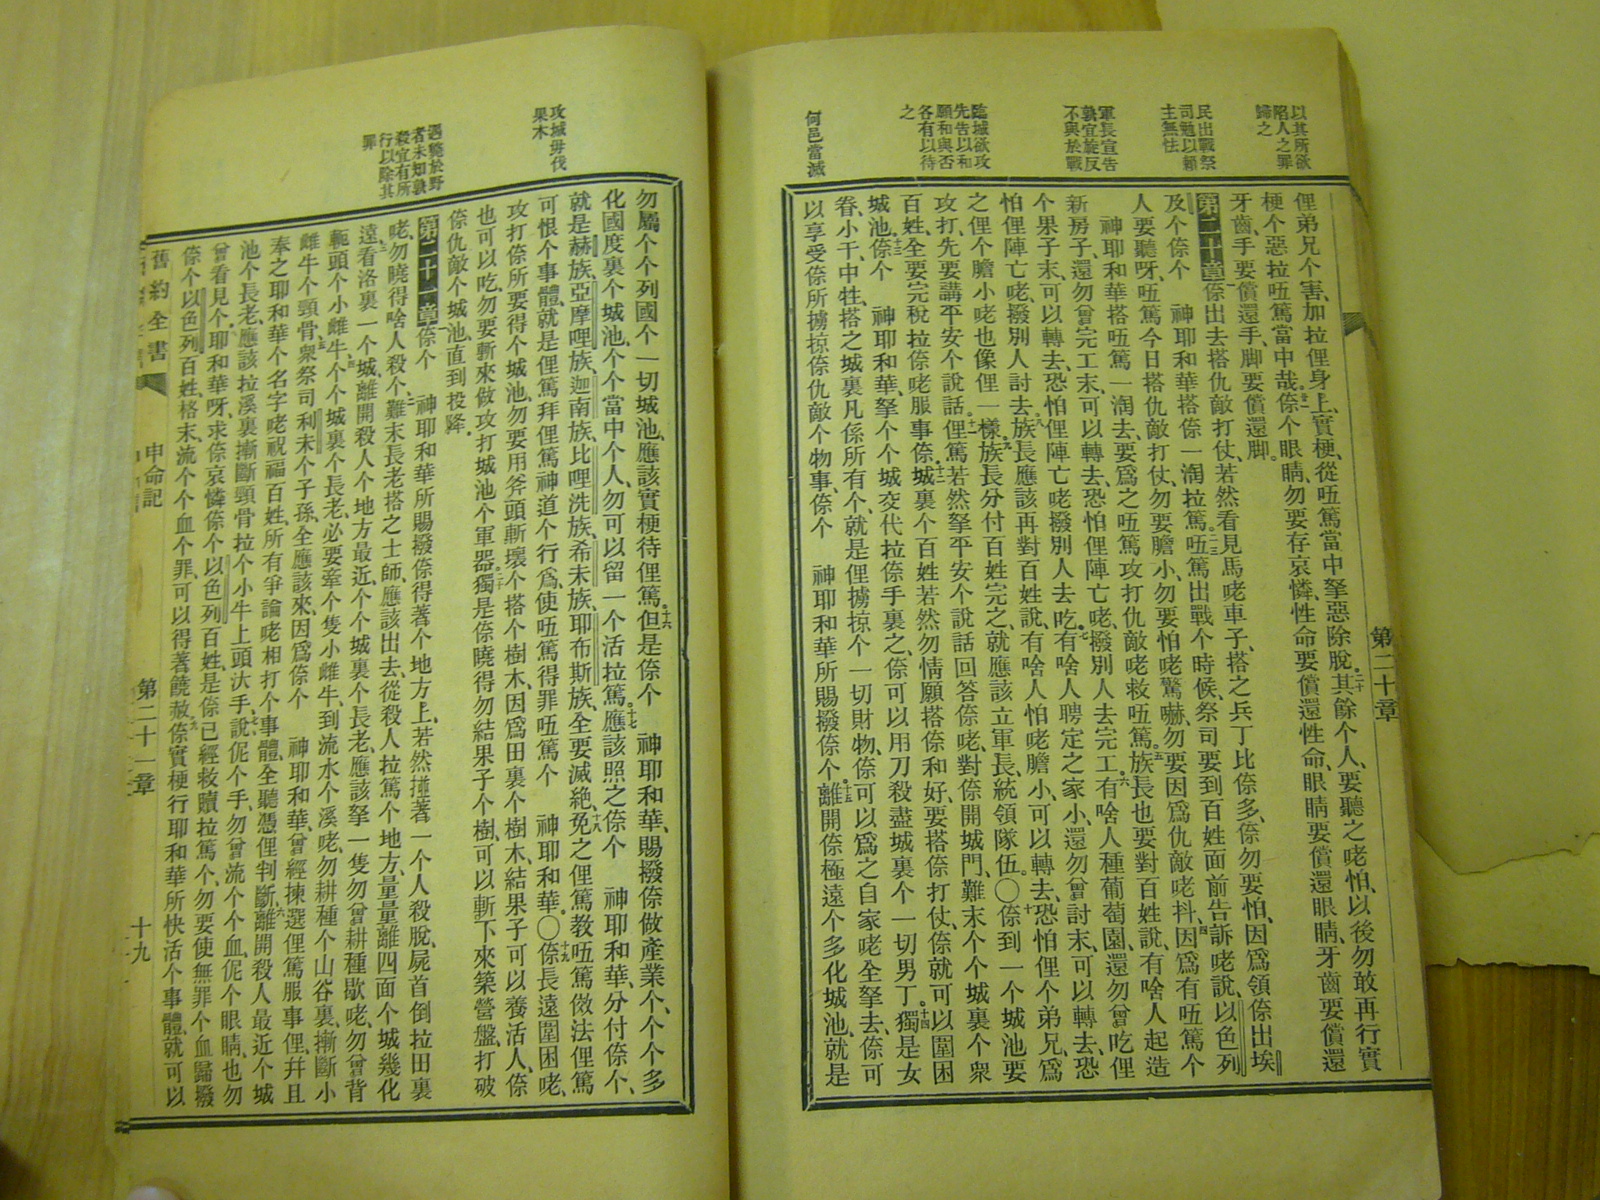 以其所欲
陷人之罪
歸之
民出戰祭
司勉以賴
主無怯
軍長宣告
孰宜旋反
不與於戰
臨城欲攻
先告以和
願和與否
各有以待
之
何邑當滅
第二十章
俚弟兄个害、加拉俚身上、實梗、從㕶篤當中拏惡除脫、其餘个人、要聽之咾怕、以後勿敢再行實
梗个惡拉㕶篤當中哉、倷个眼睛、勿要存哀憐、性命要償還性命、眼睛要償還眼睛、牙齒要償還
牙齒、手要償還手、脚要償還脚。
第二十章 倷出去搭仇敵打仗、若然看見馬咾車子、搭之兵丁比倷多、倷勿要怕、因爲領倷出埃
及个倷个 神耶和華搭倷一淘拉篤、㕶篤出戰个時候、祭司要到百姓面前告訴咾說、以色列
人要聽呀、㕶篤今日搭仇敵打仗、勿要膽小、勿要怕咾驚嚇、勿要因爲仇敵咾抖、因爲有㕶篤个
神耶和華搭㕶篤一淘去、要爲之㕶篤攻打仇敵咾救㕶篤、族長也要對百姓說、有啥人起造
新房子、還勿曾完工末、可以轉去、恐怕俚陣亡咾、撥別人去完工、有啥人種葡萄園、還勿曾吃俚
个果子末、可以轉去、恐怕俚陣亡咾撥別人去吃、有啥人聘定之家小、還勿曾討末、可以轉去、恐
怕俚陣亡咾、撥別人討去、族長應該再對百姓說、有啥人怕咾膽小、可以轉去、恐怕俚个弟兄、爲
之俚个膽小咾也像俚一樣、族長分付百姓完之、就應該立軍長、統領隊伍。〇倷到一个城池要
攻打、先要講平安个說話、俚篤若然拏平安个說話回答倷咾、對倷開城門、難末个个城裏个衆
百姓、全要完稅拉倷咾服事倷、城裏个百姓若然勿情願搭倷和好、要搭倷打仗、倷就可以圍困
城池、倷个 神耶和華、拏个个城交代拉倷手裏之、倷可以用刀殺盡城裏个一切男丁、獨是女
眷、小干、中牲、搭之城裏凡係所有个、就是俚擄掠个一切財物、倷可以爲之自家咾全拏去、倷可
以享受倷所擄掠倷仇敵个物事、倷个 神耶和華所賜撥倷个、離開倷極遠个多化城池、就是
攻城毋伐
果木
遇斃於野
者未知孰
殺宜有所
行以除其
罪
勿屬个个列國个一切城池、應該實梗待俚篤、但是倷个 神耶和華、賜撥倷做產業个、个个多
化國度裏个城池、个个當中个人、勿可以留一个活拉篤、應該照之倷个 神耶和華分付倷个、
就是赫族、亞摩哩族、迦南族、比哩洗族、希未族、耶布斯族、全要滅絕、免之俚篤教㕶篤傚法俚篤
可恨个事體、就是俚篤拜俚篤神道个行爲、使㕶篤得罪㕶篤个 神耶和華。〇倷長遠圍困咾、
攻打倷所要得个城池、勿要用斧頭斬壞个搭个樹木、因爲田裏个樹木、結果子可以養活人、倷
也可以吃、勿要斬來做攻打城池个軍器、獨是倷曉得勿結果子个樹、可以斬下來築營盤、打破
倷仇敵个城池、直到投降。
第二十一章 倷个 神耶和華所賜撥倷得著个地方上、若然撞著一个人殺脫、屍首倒拉田裏
咾、勿曉得啥人殺个、難末長老搭之士師、應該出去、從殺人拉篤个地方、量量離四面个城幾化
遠、看看落裏一个城、離開殺人个地方最近、个个城裏个長老、應該拏一隻勿曾耕種歇咾、勿曾背
軛頭个小雌牛、个个城裏个長老、必要牽个隻小雌牛、到流水个溪咾、勿耕種个山谷裏、斬斷小
雌牛个頸骨、衆祭司利未个子孫、全應該來、因爲倷个 神耶和華、曾經揀選俚篤服事俚、幷且
奉之耶和華个名字咾祝福百姓、所有爭論咾相打个事體、全聽憑俚判斷、離開殺人最近个城
池个長老、應該拉溪裏斬斷頸骨拉个小牛上頭汏手、說伲个手、勿曾流个个血、伲个眼睛也勿
曾看見个、耶和華呀、求倷哀憐倷个以色列百姓、是倷已經救贖拉篤个、勿要使無罪个血歸撥
倷个以色列百姓、格末、流个个血个罪可以得著饒赦、倷實梗行耶和華所快活个事體、就可以
舊約全書 申命記 第二十一章 十九